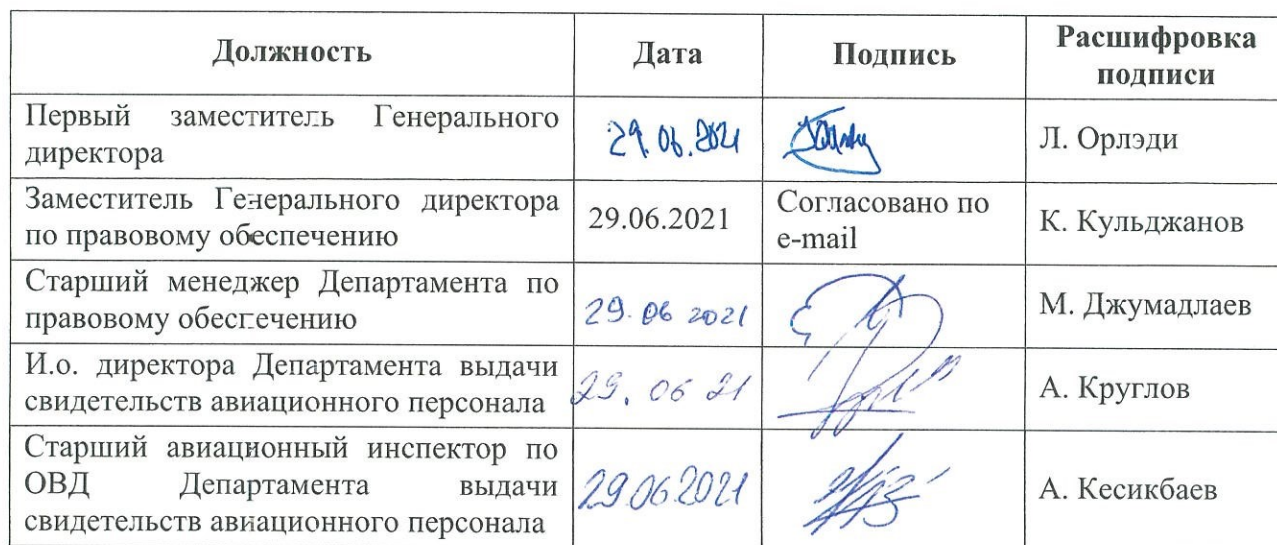 Должность Дата Подпись Расшифровка
подписи
Первый заместитель Генерального
директора
29.06.2021
Л. Орлэди
Заместитель Генерального директора
по правовому обеспечению
29.06.2021
Согласовано по
e-mail
К. Кульджанов
Старший менеджер Департамента по
правовому обеспечению
29.06 2021
М. Джумадлаев
И.о. директора Департамента выдачи
свидетельств авиационного персонала
29. 06 21
А. Круглов
Старший авиационный инспектор по
ОВД Департамента выдачи
свидетельств авиационного персонала
29.06.2021
А. Кесикбаев